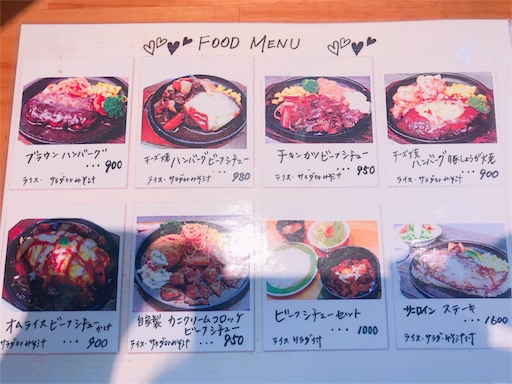 FOOD MENU
ブラウンハンバーグ
・・・900
ライス・サラダorみそ汁
チーズ焼ハンバーグビーフシチュー
・・・980
ライス・サラダorみそ汁
チキンカツビーフシチュー
・・・950
ライス・サラダorみそ汁
チーズ焼ハンバーグ豚しょうが焼
・・・900
ライス・サラダorみそ汁
オムライスビーフシチューかけ
・・・900
サラダorみそ汁
自家製 カニクリームコロッケ
ビーフシチュー
・・・950
ライス・サラダorみそ汁
ビーフシチューセット
・・・1000
ライス サラダ付
サーロイン ステーキ
・・・1600
ライス・サラダ・みそ汁付